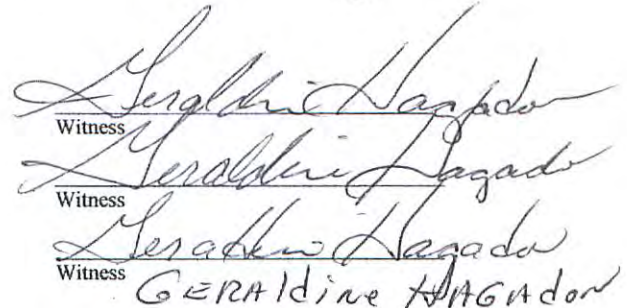 Geraldine Hagadon
Witness
Geraldine Hagadon
Witness
Geraldine Hagadon
Witness
GERAldine HAGAdon